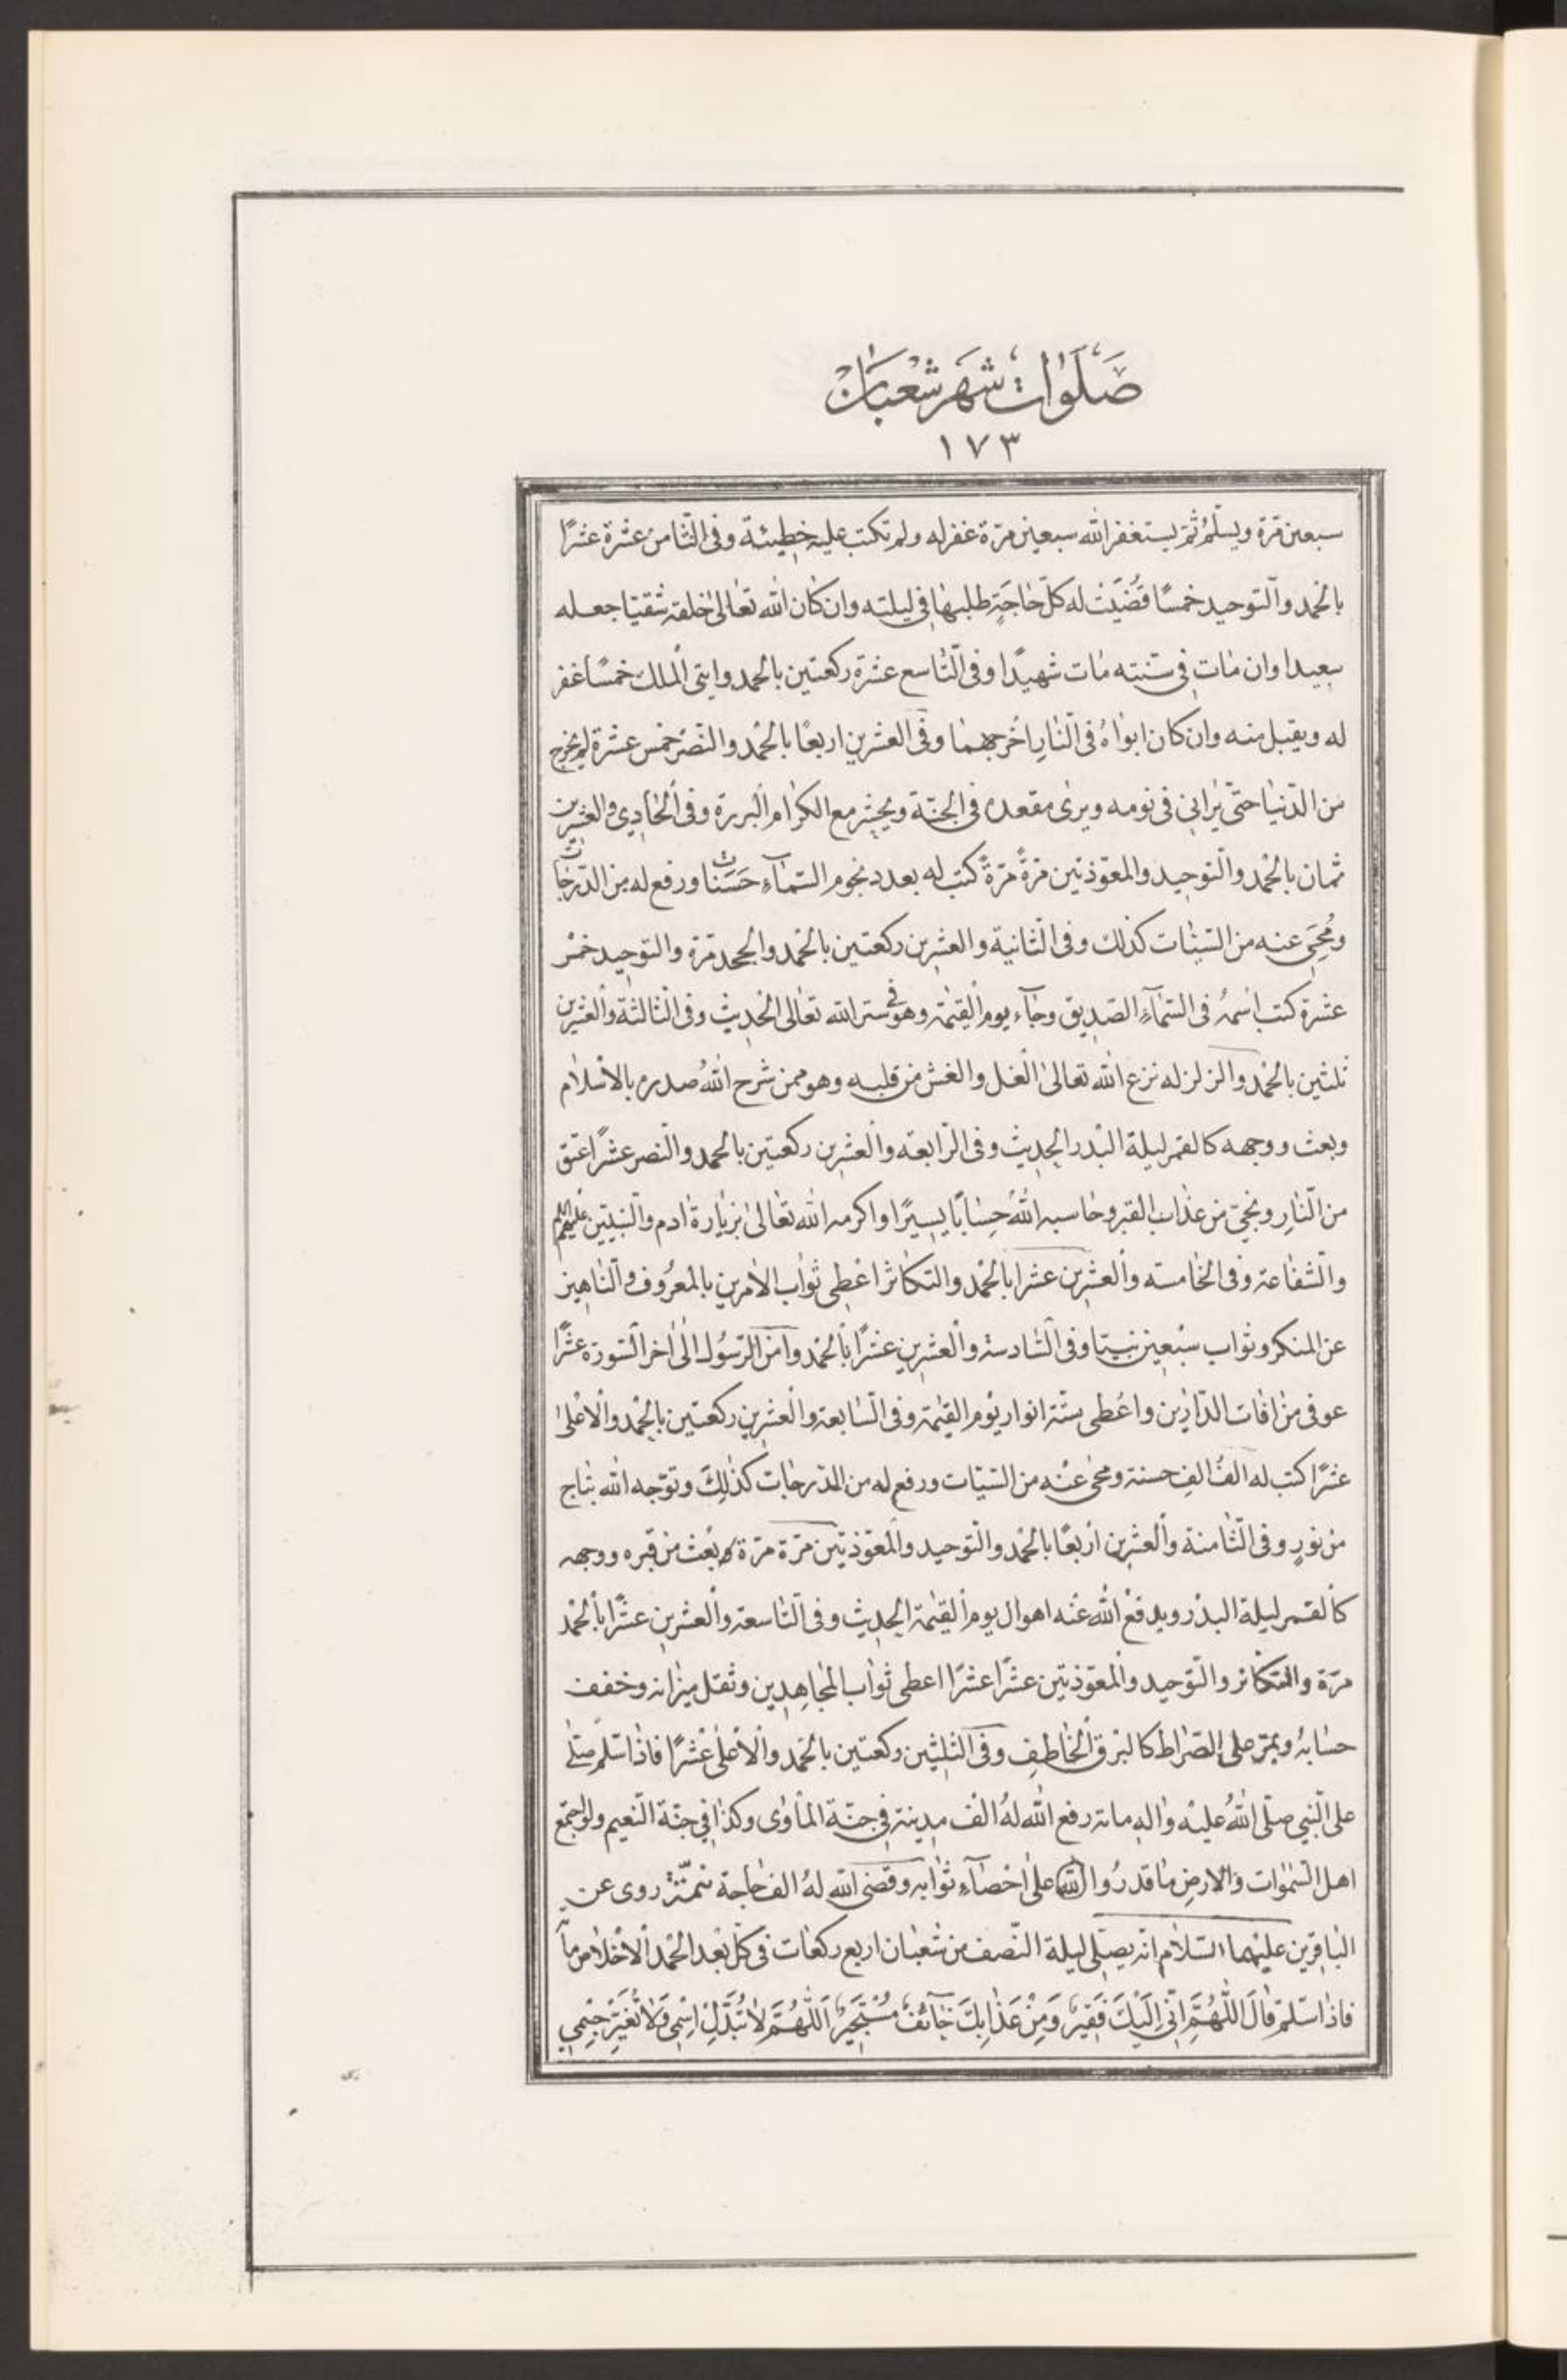 صَلَوٰاتُ شَهْرِ شَعْبٰانَ
١٧٣
سبعين مرّة ويسلّم ثمّ يستغفر الله سبعين مرّة غفر له ولم تكتب عليه خطيئة وفى الثّامن عشرة عشرًا
بالحمد والتّوحيد خمسًا قُضيَت له كلّ حٰاجَةٍ طلبهٰا فى ليلته وان كٰان الله تعٰالى خلقه شقيّا جعله
سعيدا وان مٰات فى سنته مٰات شهيدًا وفى التّاسع عشرة ركعتين بالحمد وايتى الملك خمسًا غفر
له ويقبل منه وان كان ابوٰاهُ فى النّارِ اخرجهمٰا وفى العشرين اربعًا بالحمد والنّصر خمس عشرة لم يخرج
من الدّنيٰا حتّى يرٰانى فى نومه ويرى مقعده فى الجنّة ويحشر مع الكرٰام البررة وفى الحٰادى والعشرين
ثمان بالحمد والتّوحيد والمعوّذتين مرّةً مرّةً كتب له بعدد نجوم السّمٰآءِ حَسَنٰات ورفع له من الدّرجٰات
ومُحِىَ عنه من السّيئٰات كذلك وفى الثّانية والعشرين ركعتين بالحمد والجحد مرّة والتّوحيد خمس
عشرة كتب اسمهُ فى السّمٰآءِ الصّديق وجٰآء يوم القيٰمة وهو فى ستر الله تعٰالى الحديث وفى الثّالثة والعشرين
ثلثين بالحمد والزلزله نزع الله تعالى الغل والغش من قلبه وهو ممن شرح اللهُ صدره بالاسلٰام
وبعث ووجهه كالقمر ليلة البدر الحديث وفى الرّابعه والعشرين ركعتين بالحمد والنصر عشرًا عتق
من النّارِ ونجى من عذٰاب القبر وحٰاسبه اللهُ حِسٰابًا يسيرًا واكرمه الله تعٰالى بزيٰارة ادم والنّبيّين عليهم
والشّفٰاعة وفى الخٰامسته والعشرين عشرا بالحمد والتكٰاثر اعطى ثوٰاب الامرين بالمعرُوف والنّاهين
عن المنكر وثوٰاب سبعين نبيّا وفى السّادسة والعشرين عشرًا بالحمد وامن الرّسُول الى اخر السّورة عشرًا
عوفى من افٰات الدّارين واعطى ستّة انوار يوم القيٰمة وفى السّابعة والعشرين ركعتين بالحمد والاعلى
عشرًا كتب له الفُ الفِ حسنة ومحى عنْه من السّيّات ورفع له من الدّرجٰات كذٰلكَ وتوّجه الله بتٰاج
من نورٍ وفى الثّامنة والعشرين اربعًا بالحمد والتّوحيد والمعوّذتين مرّة مرّة بعث من قبره ووجهه
كالقمر ليلة البدر ويدفعُ الله عنه اهوال يوم القيٰمة الحديث وفى التّاسعة والعشرين عشرًا بالحمد
مرّة والتّكاثر والتّوحيد والمعوّذتين عشرًا عشرًا اعطى ثوٰاب المجٰاهدين وثقل ميزٰانه وخفف
حسٰابهُ ويمرّ على الصّرٰاط كالبرق الخٰاطف وفى الثلثين ركعتين بالحمد والاعلى عشرًا فاذٰا سلّم صلّى
على النّبي صلّى اللهُ عليه واله مائة رفع الله لهُ الف مدينة فى جنّة المأوٰى وكذٰا فى جنّة النّعيم ولو اجتمع
اهل السّمٰوات والارضِ مٰا قدرُوا على احصٰآءِ ثوٰابه وقضى الله لهُ الف حٰاجة تتمّة روى عن
البٰاقرين عليهما السّلٰام انّه يصلّى ليلة النّصف من شعبٰان اربع ركعٰات فى كلّ بعد الحمد الاخلٰاص مأة
فاذٰا سلّم قٰالَ اللّهُمَّ اِنّى اِلَيْكَ فَقيرٌ وَمِنْ عَذٰابِكَ خٰآئفٌ مُسْتَجيرٌ اَللّهُمَّ لٰا تُبَدِّلْ اسْمى وَلٰا تُغَيِّرْ جِسْمى